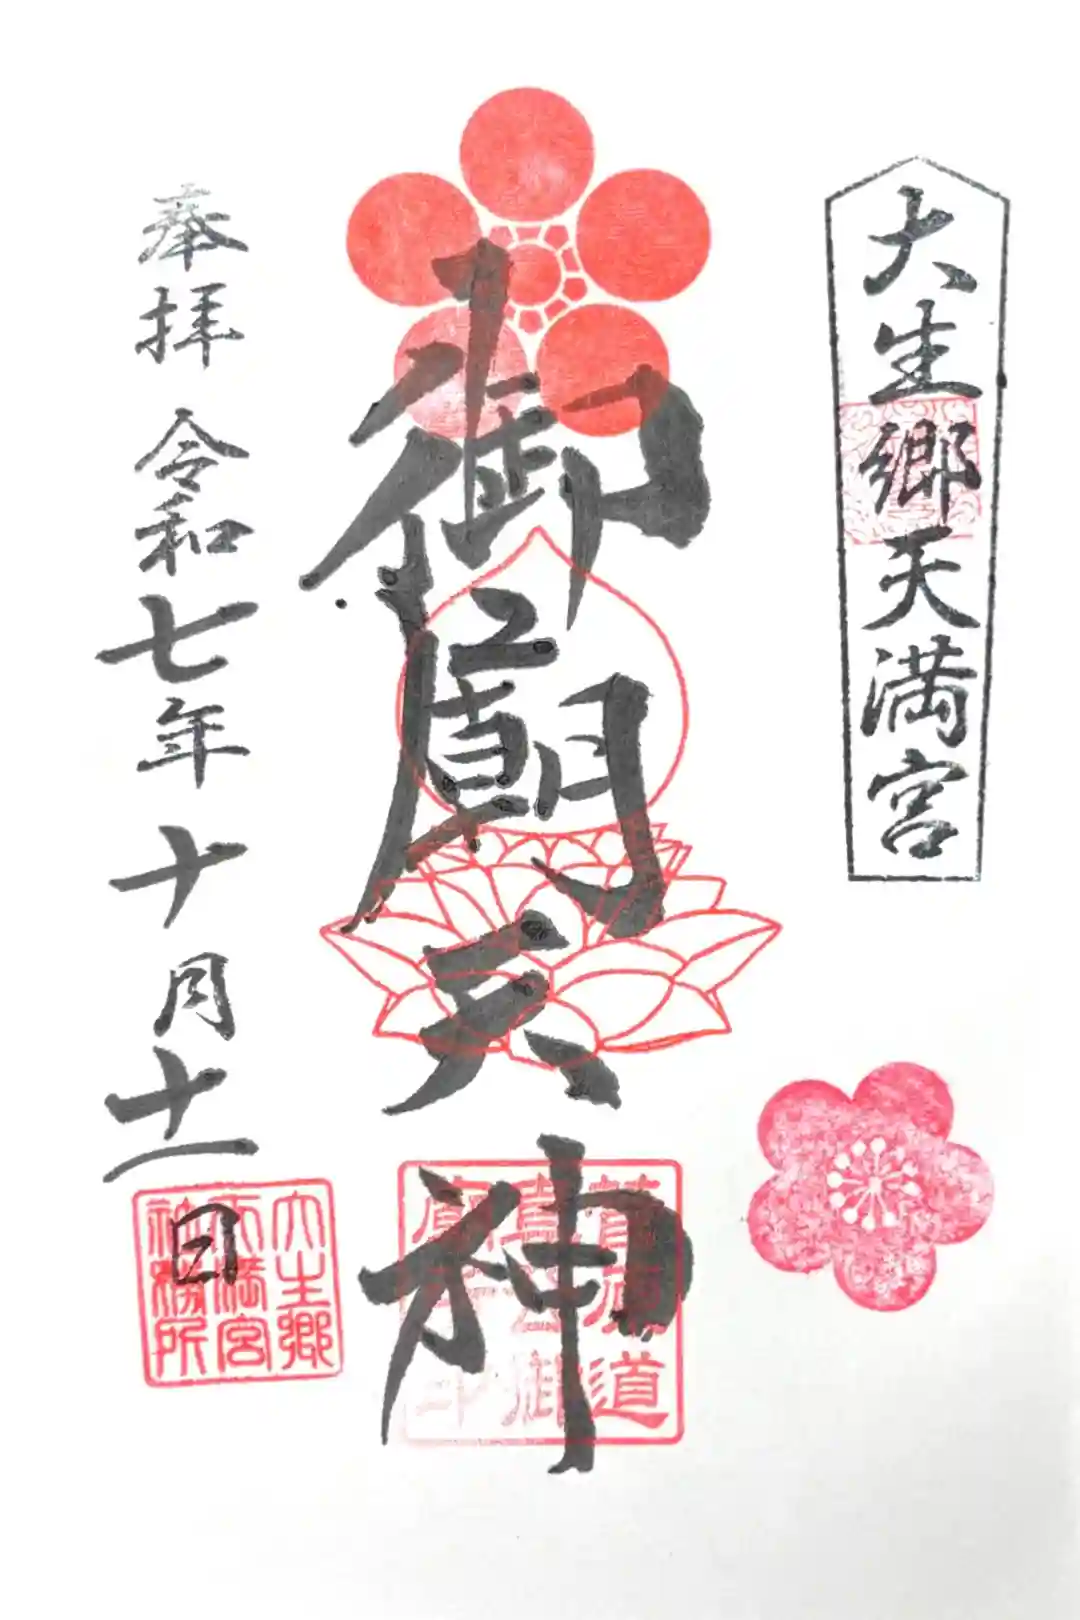 大生郷天満宮
御廟天神
道
奉拝 令和七年十月十一日
大生郷
天満宮
社務所